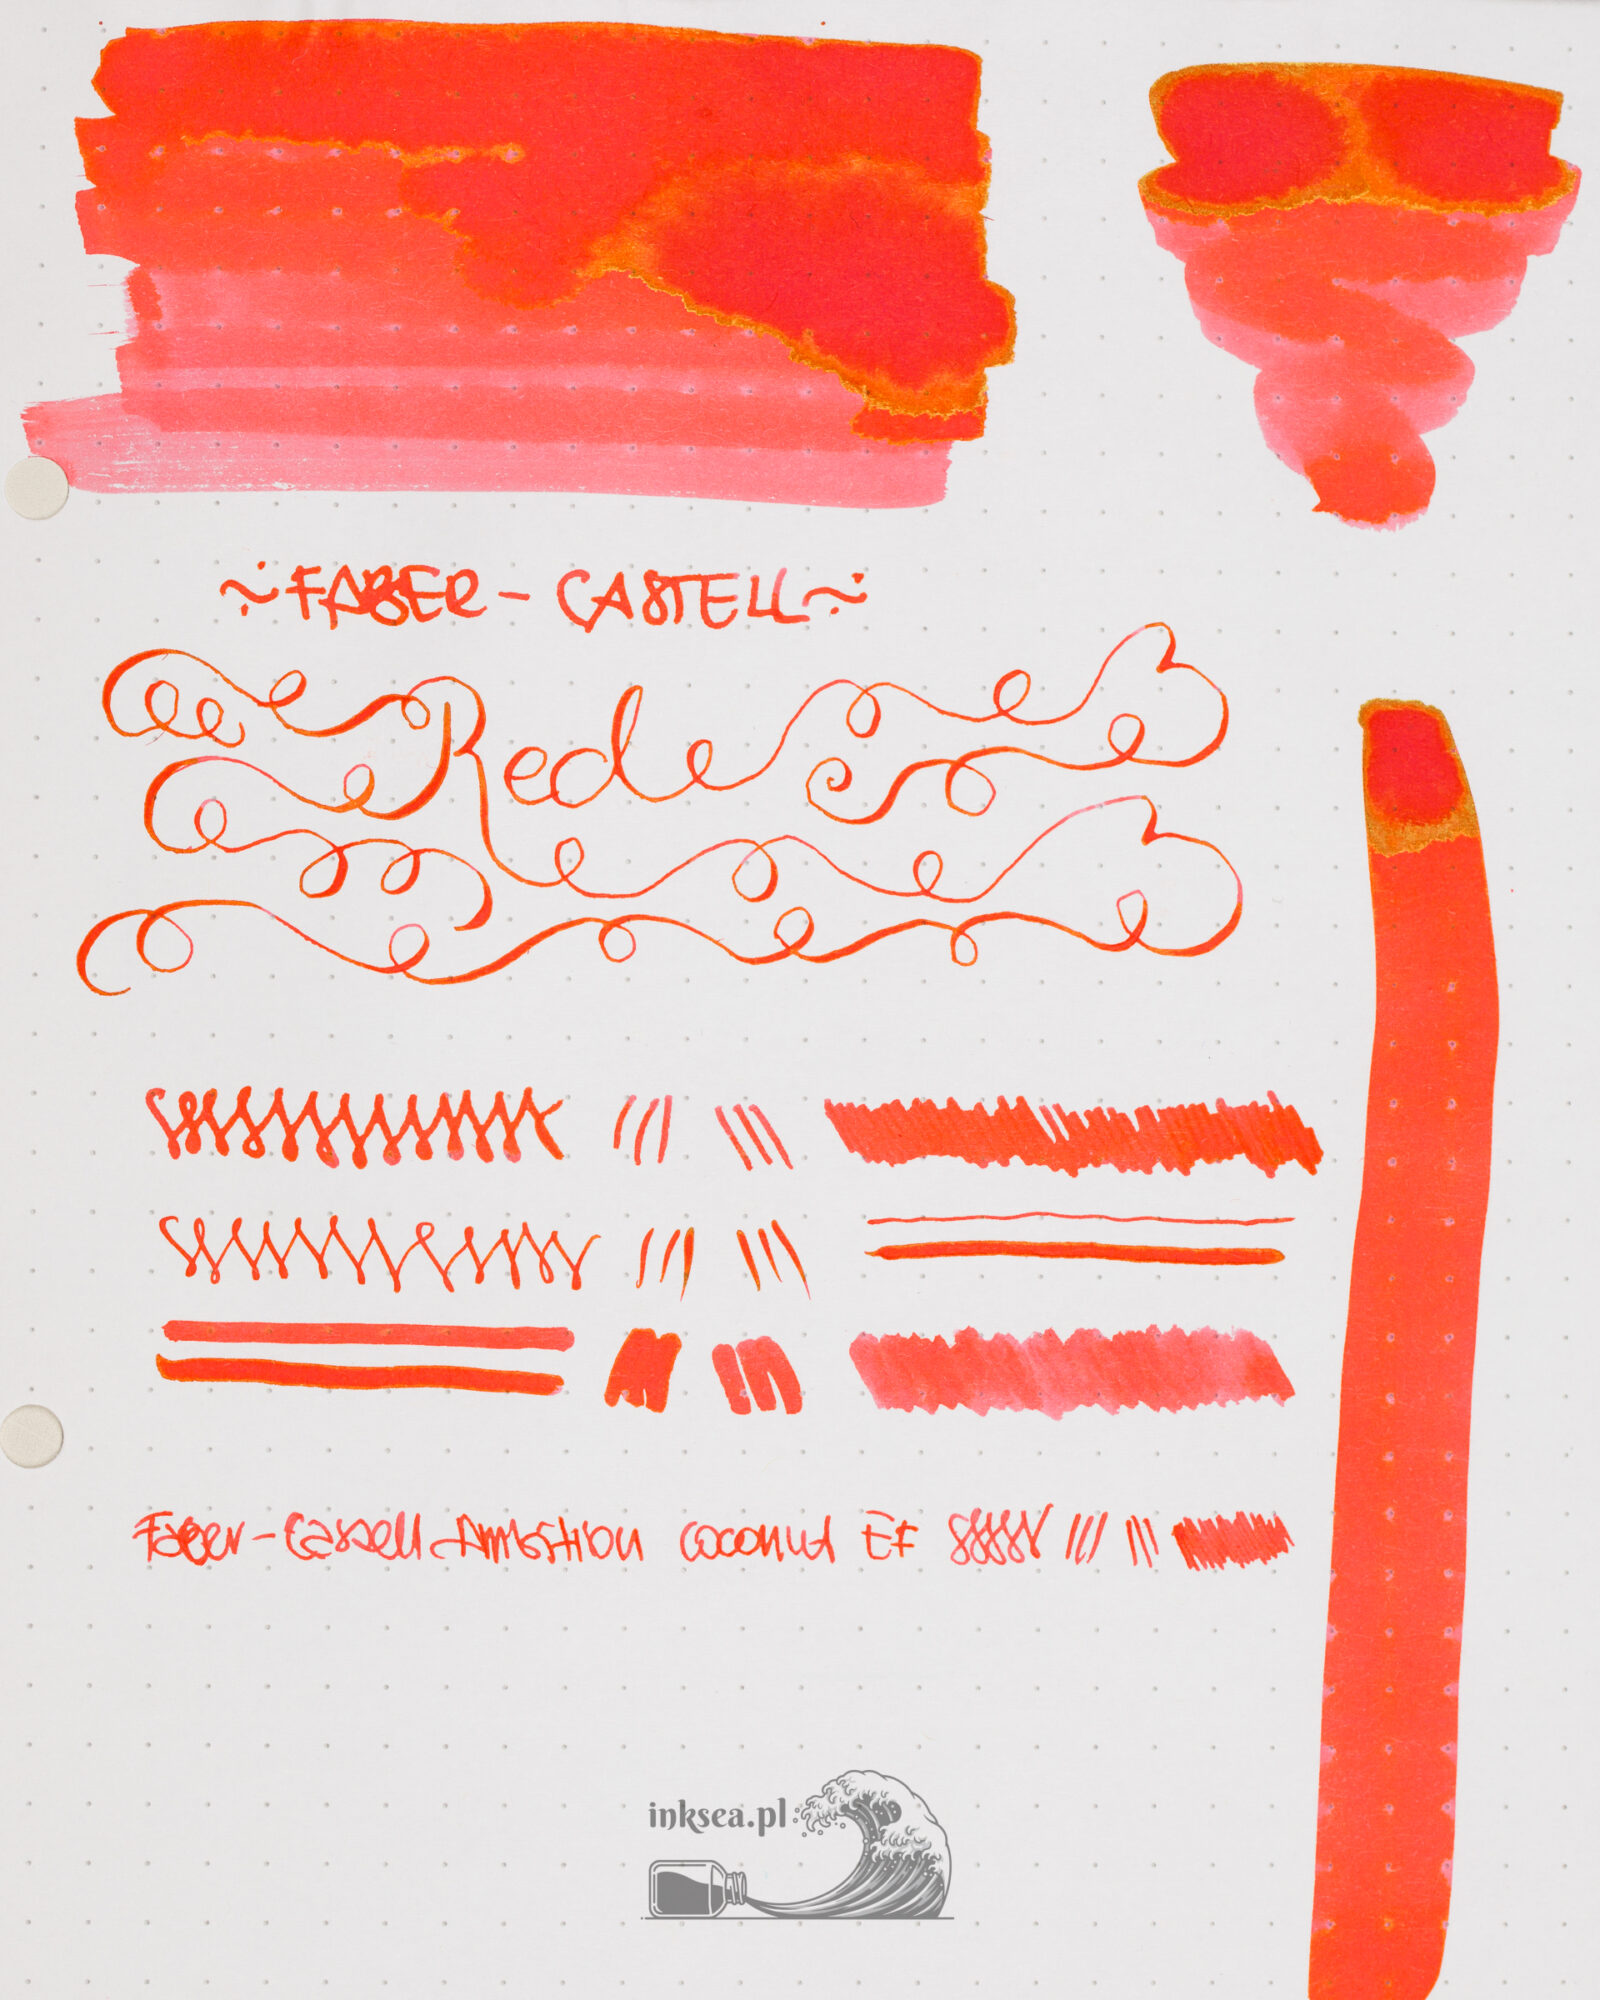 ~FABER - CASTELL~
Red
Faber-Castell Ambition Coconut EF
inksea.pl